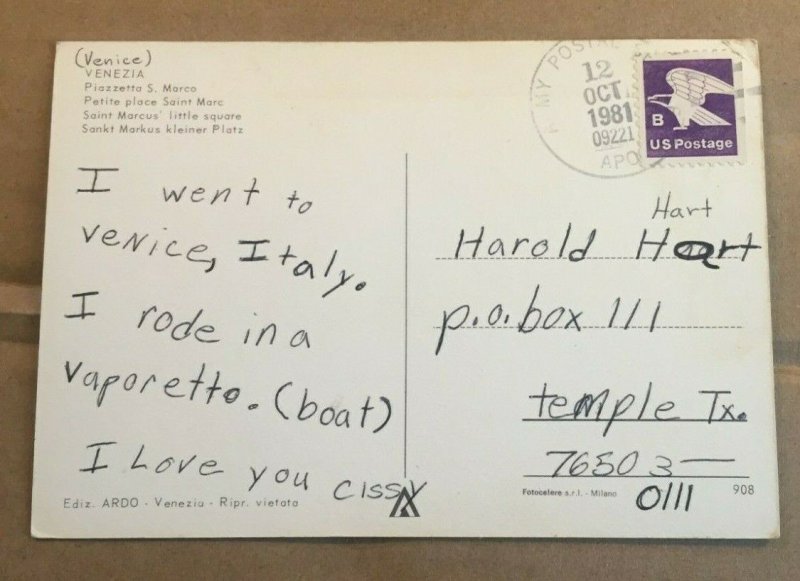 (Venice)
VENEZIA
Piazzetta S. Marco
Petite place Saint Marc
Saint Marcus' little square
Sankt Markus kleiner Platz
I went to
Venice, Italy.
I rode in a
vaporetto. (boat)
I Love you cissy
Ediz. ARDO - Venezia - Ripr. vietata
MY POSTAL
12
OCT
1981
09221
APO
B
US Postage
Hart
Harold Hart
p.o. box 111
temple Tx.
76503—
0111
Fotocelere s.r.l. - Milano
908